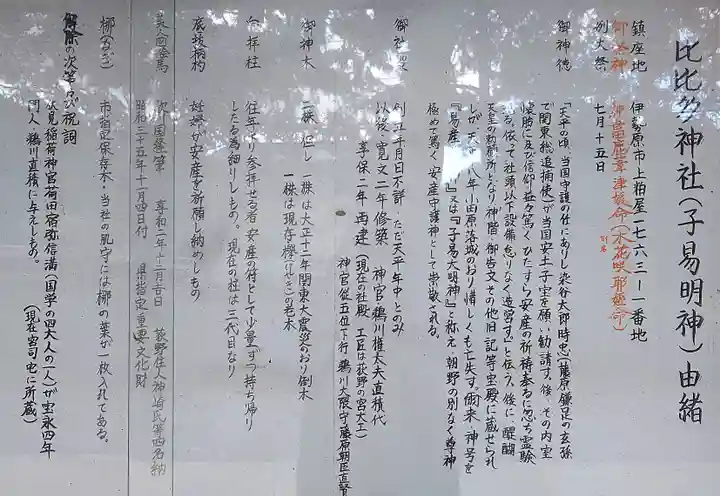 比比多神社(子易明神)由緒
鎮座地 伊勢原市上粕屋一七六三ー一番地
御祭神 神吾田鹿葦津姫命(木花咲耶姫命)
別名
例大祭 七月十五日
御神徳 「天平の頃、当国守護の任にありし染谷太郎時忠(藤原鎌足の玄孫
で関東総追捕使)が当国安土子宝を願い勧請す。後、その内室
安勝に及び信仰益々篤くひたすら安産の祈祷参るに忽ち霊験
ある、依って社頭以下設備怠りなく造営す」と伝う。後に、醍醐
天皇の勅願所となり神階、御告文その他旧記等宝殿に蔵せられ
しが、天正十八年小田原落城のおり惜しくも亡失す。爾来、神号を
「易産大明神」又は「子易大明神」と称え、朝野の別なく尊神
極めて篤く安産守護神として崇敬される。
御社殿 創立年月日不詳、ただ天平年中とのみ
以後、寛文二年修築 神官 鵜川権太夫直積代
享保二年再建(現在の社殿 工匠は荻野の宮大工)
神官従五位下行 鵜川大隅守藤原朝臣直賢
御神木 二株、但し、一株は大正十二年関東大震災のおり倒木
一株は現存欅(けやき)の老木
向拝柱 往年より参拝せる者、安産の符として少量ずつ持ち帰り
したる為細りしもの。現在の柱は三代目なり
底抜柄杓 妊婦が安産を祈願し納めしもの
美人図絵馬 歌川国経筆 享和二年十二月吉日 荻野住人神崎氏等四名納
昭和三十五年十一月四日付 県指定重要文化財
梛(なぎ) 市指定保存木・当社の肌守には梛の葉が一枚入れてある。
解除の次第及び祝詞
伏見稲荷神官荷田宿祢信満(国学の四大人の一人)が宝永四年
門人 鵜川直積に与えしもの。 (現在宮司宅に所蔵)